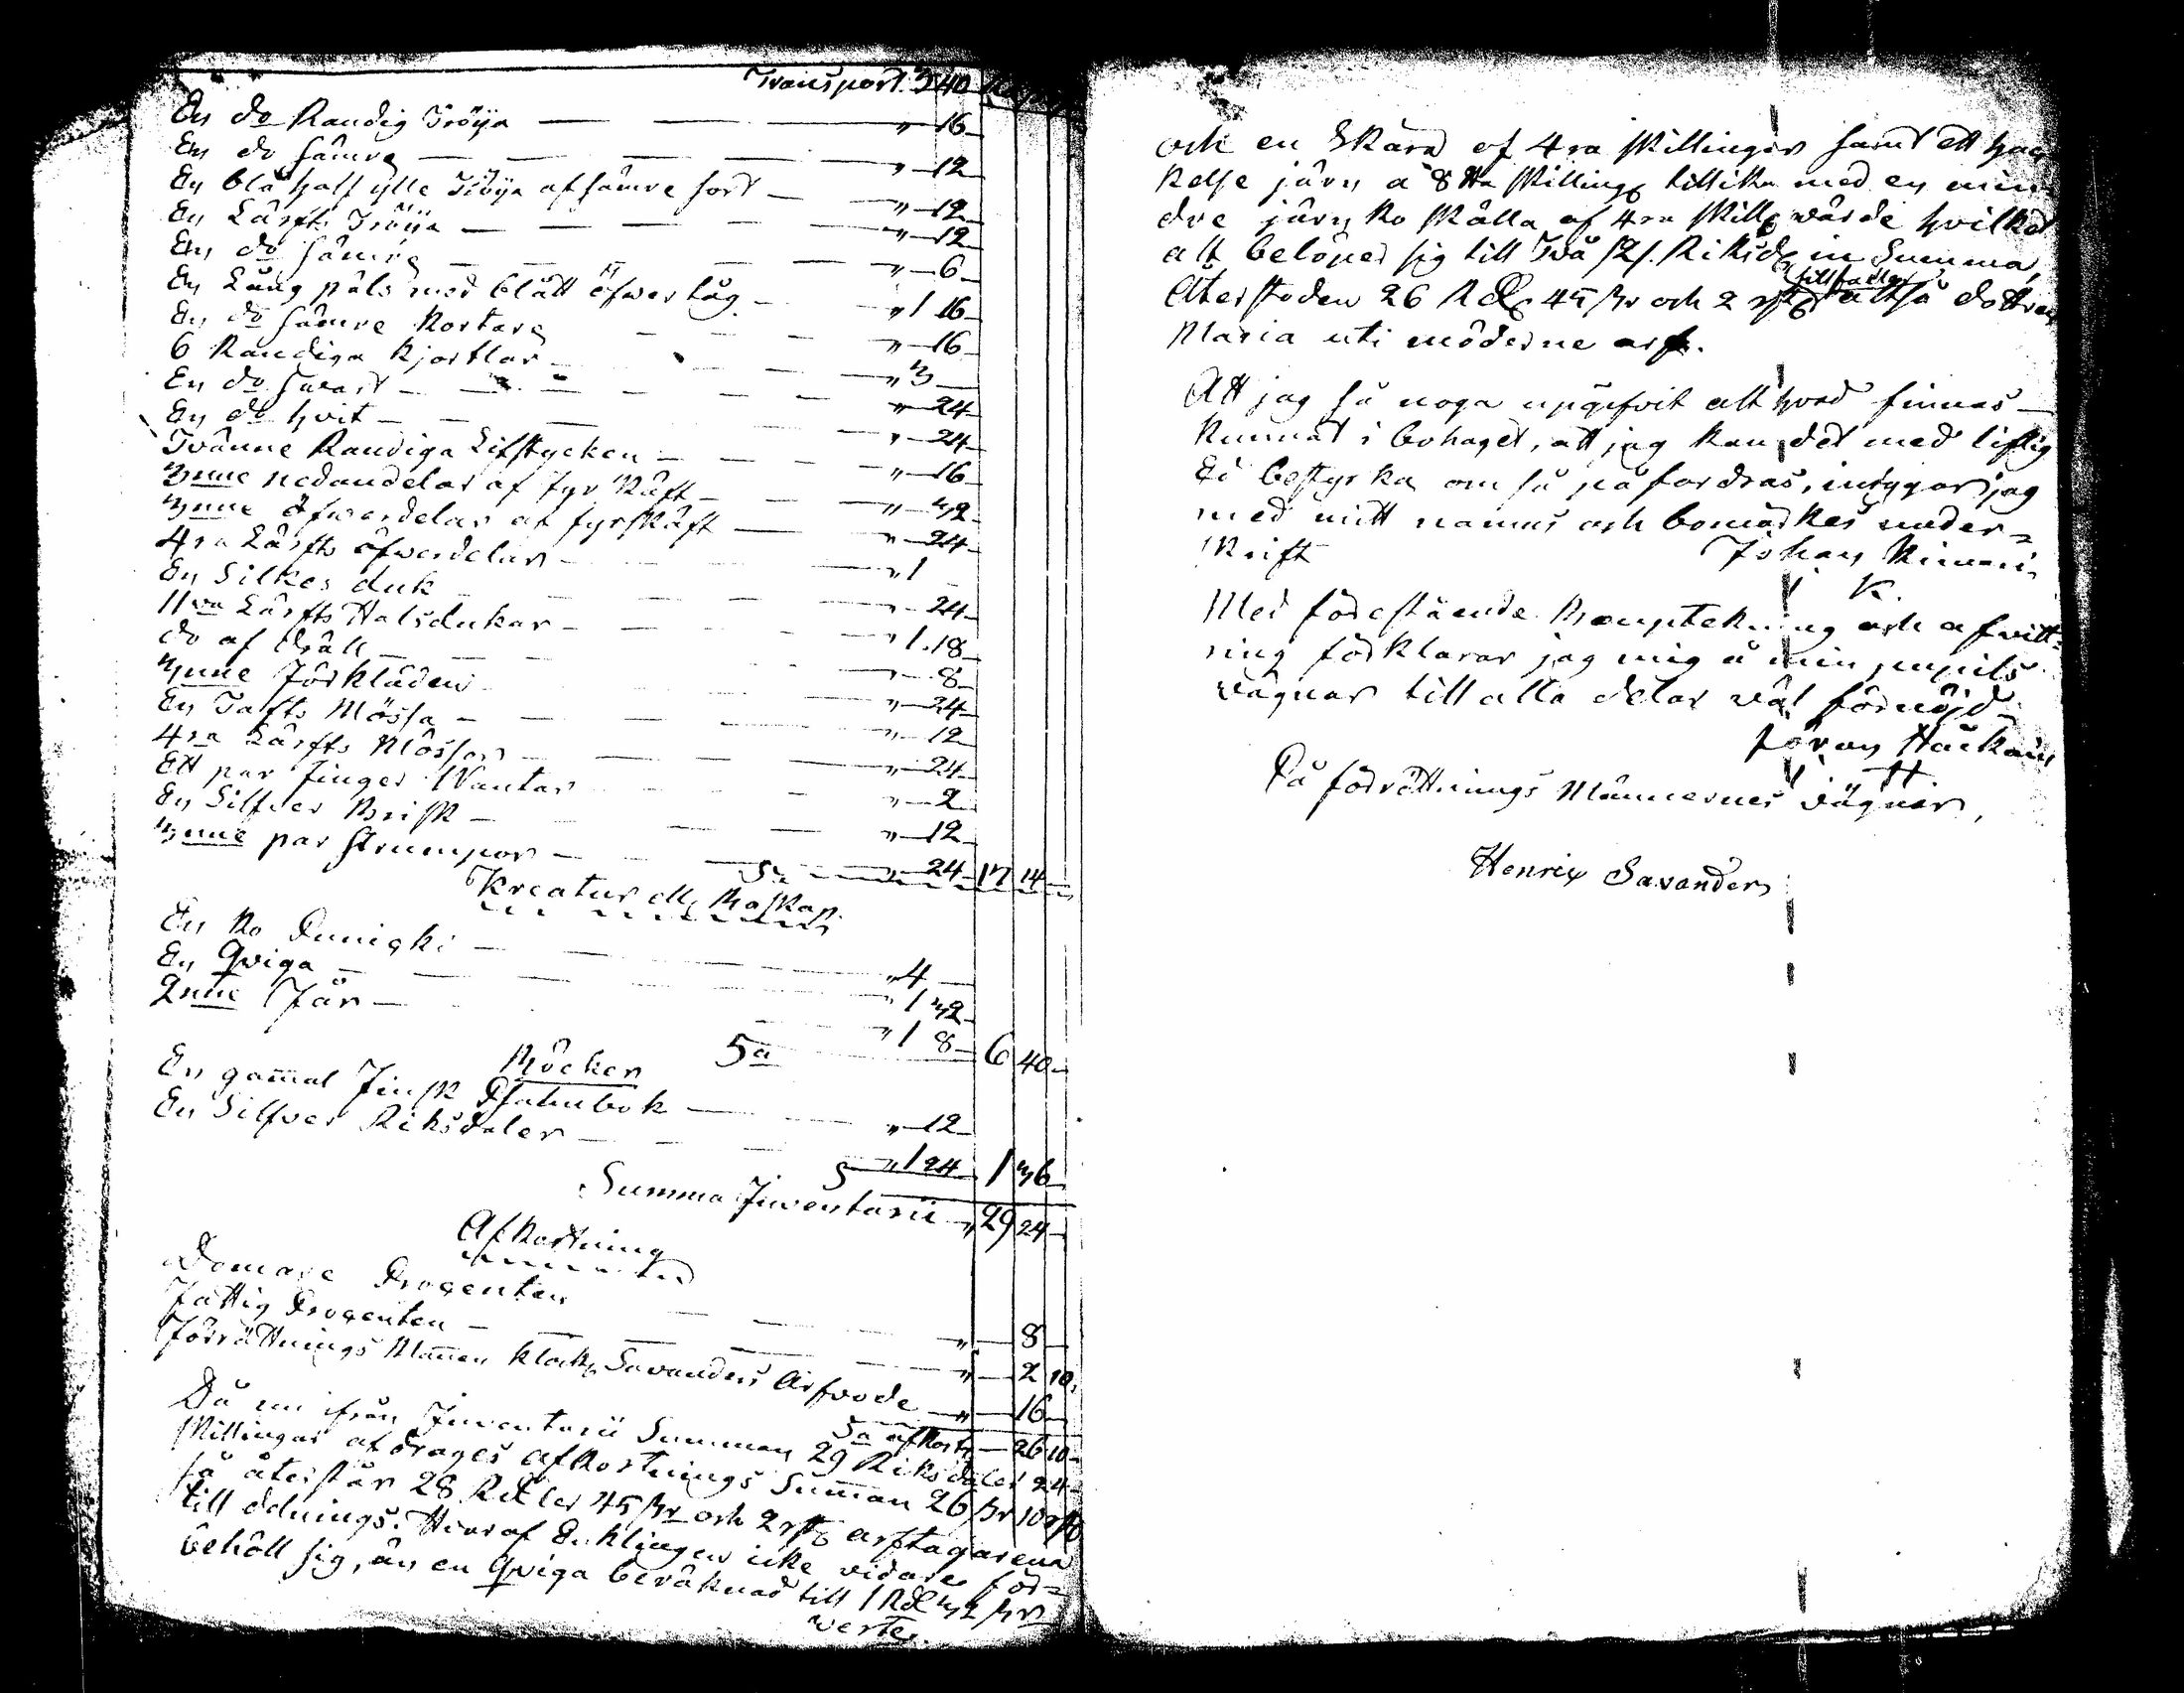 Transport 3 40
En do Randig Tröija — „ 16
En do sämre — „ 12
En blå half ylle Tröija af sämre sort — „ 12
En Lärfts Tröija — „ 12
En do sämre — „ 6
En Lång päls med blått öfwertåg — „ 1 16
En do sämre kortare — „ 16
6 Randiga kjortlar — „ 3
En do swart — „ 24
En do hvit — „ 24
Tvänne Randiga Lifstycken — „ 16
3nne nedandelar af fyrskäft — „ 32
3nne öfwerdelar af fyrskäft — „ 24
4ra Lärfts öfwerdelar — „ 1
En Silkes duk — „ 24
11va Lärfts Halsdukar — „ 1.18
do af dräll — „ 8
3nne Förkläden — „ 24
En Tafts Mössa — „ 12
4ra Lärfts Mössor — „ 24
Ett par Finger Wantar — „ 2
En Silfver Brisk — „ 12
3nne par Strumpor — Sa „ 24 17 14
Kreatur ell Boskap
En Ko Punicki — „ 4
En Qviga — „ 1 32
2nne Får — „ 1 8
Sa 6 40
Böcker
En gammal Finsk Psalmbok — „ 12
En Silfver Riksdaler — S „ 1 24 1 36
Summa Inventarii „ 29 24
Afkortning
Domare Procenten — „ 8
Fattig Procenten — „ 2 10
Förrättnings Mannen Klock Savanders Arfvode „ 16
Sa afkortn — 26 10
Då nu ifrån Inventarii Summan 29 Riksdaler 24
skillingar afdrages afkortnings Summan 26 skr 10 rst
så återstår 28 Rdler 45 skr och 2 rst arftagarena
till delnings. Hvaraf Enklingen icke vidare för=
behöll sig, än en Qviga beräknad till 1 Rd 32 skr
verte.
och en Skära af 4ra skillingar samt ett hac
kelse järn a 8tta skilling tillika med en min
dre järn ko skälla af 4ra skill wärde hvilket
allt belöper sig till Två /2/. Riksd in Summa,
tillfaller
Återstoden 26 Rd 45 skr och 2 rst altså dottren
Maria uti möderne arf.
Att jag så noga upgifvit allt hvad finnas
kunnat i bohaget, att jag kan det med liflig
Ed bestyrka om så påfordras, intygar jag
med mitt namns och bomärkes under=
skrift Johan Kimari
K.
Med förestående Boupteckning och afvitt=
ring förklarar jag mig å min pupils
vägnar till alla delar wäl förnöjd
Göran Hackain
H
På förrättnings Männernes vägnar,
Henrix Savander